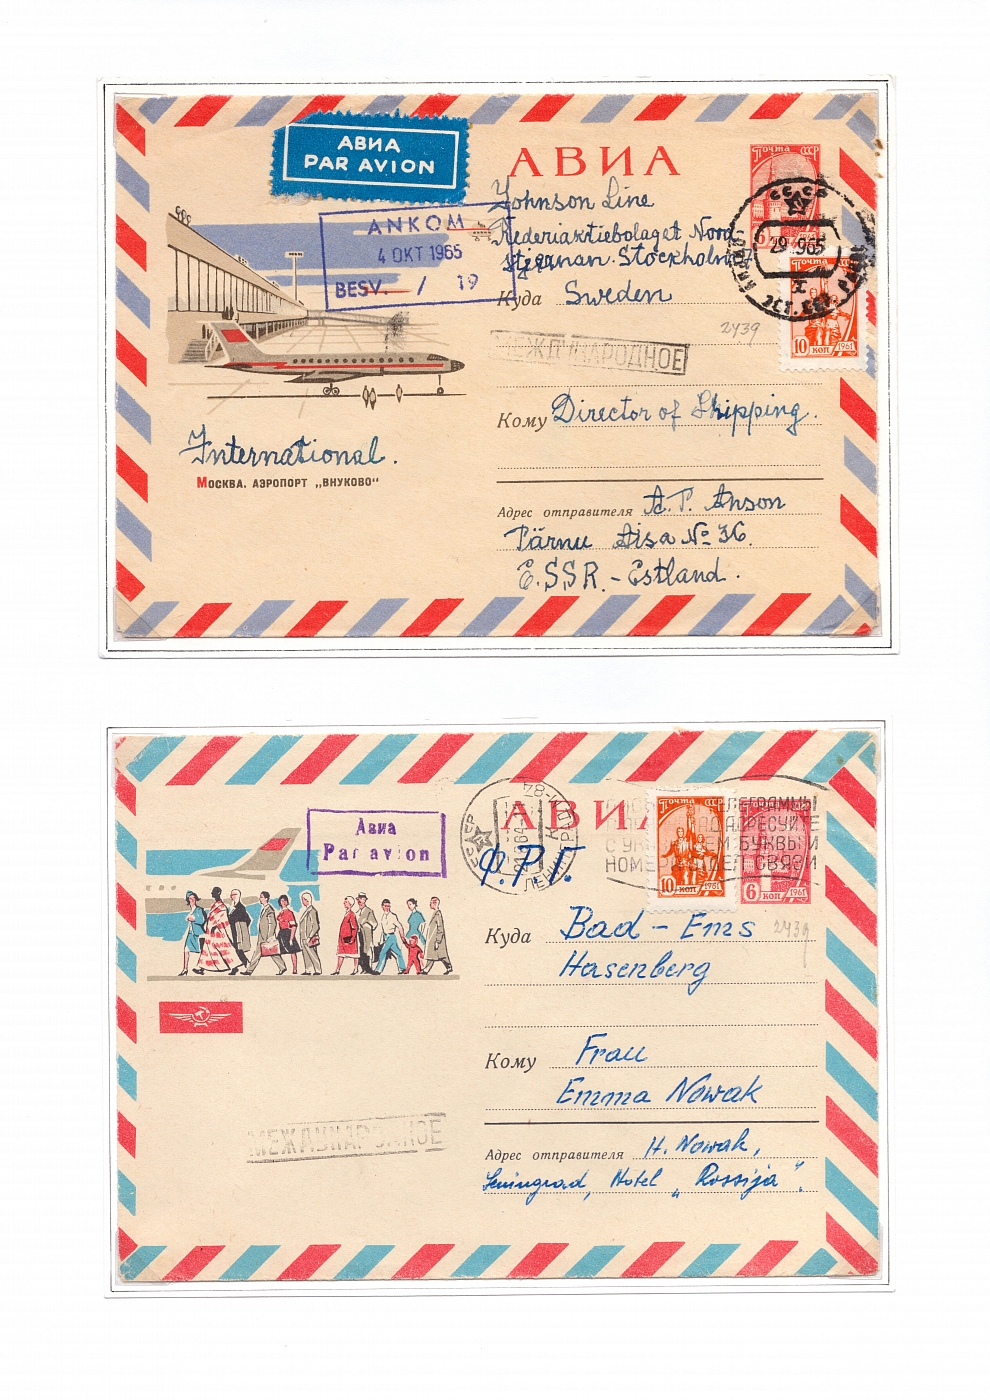 АВИА
PAR AVION
АВИА
ПОЧТА СССР
6
ANKOM
4 OKT 1965
BESV. / 19
Johnson Line
Rederiaktiebolaget Nord
Stjernan. Stockholm 7
Куда Sweden
СССР
29 .965
10 КОП 1961
2439
МЕЖДУНАРОДНОЕ
Кому Director of Shipping.
International.
МОСКВА. АЭРОПОРТ „ВНУКОВО“
Адрес отправителя A.T. Anson
Pärnu Aisa № 36.
E.SSR. - Estland.
АВИА
Авиа
Par avion
СССР
ЛЕНИНГРАД
ПОЧТА СССР
10 КОП 1961
6 КОП 1961
АДРЕСУЙТЕ
БУКВЫ И
НОМЕР СВЯЗИ
Ф.Р.Г.
Куда Bad - Ems
2439
Hasenberg
Кому Frau
Emma Nowak
МЕЖДУНАРОДНОЕ
Адрес отправителя H. Nowak,
Leningrad, Hotel „Rossija“.